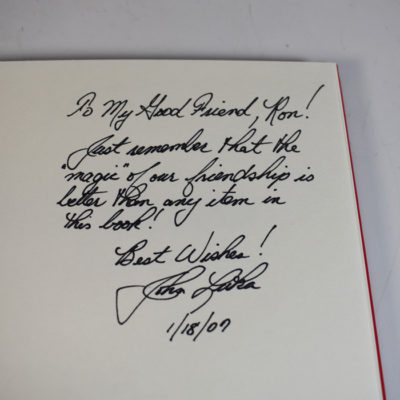 To My Good Friend, Ron!
Just remember that the
"magic" of our friendship is
better than any item in
this book!
Best Wishes!
John
1/18/07